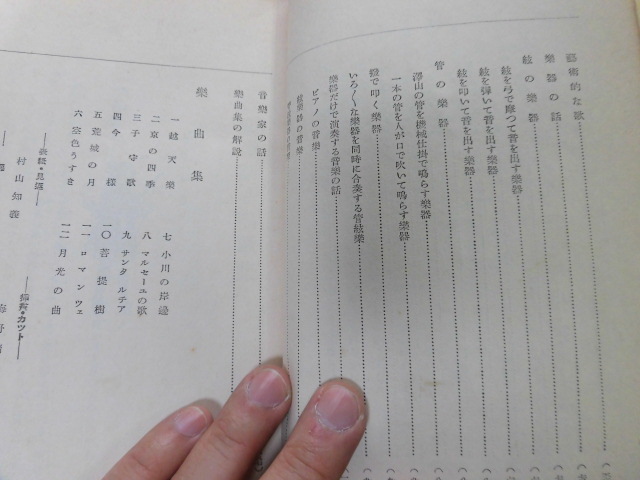 藝術的な歌
樂器の話
絃の樂器
絃を弓で摩つて音を出す樂器
絃を彈いて音を出す樂器
絃を叩いて音を出す樂器
管の樂器
澤山の管を機械仕掛で鳴らす樂器
一本の管を人が口で吹いて鳴らす樂器
撥で叩く樂器
いろ〱な樂器を同時に合奏する管絃樂
樂器だけで演奏する音樂の話
ピアノの音樂
絃樂器の音樂
音樂家の話
樂曲集の解説
樂曲集
一越天樂
二京の四季
三子守歌
四今樣
五荒城の月
六空色うすき
七小川の岸邊
八マルセーユの歌
九サンタルチア
一〇菩提樹
一一ロマンツェ
一二月光の曲
表紙・見返
村山知義
插畫・カツト